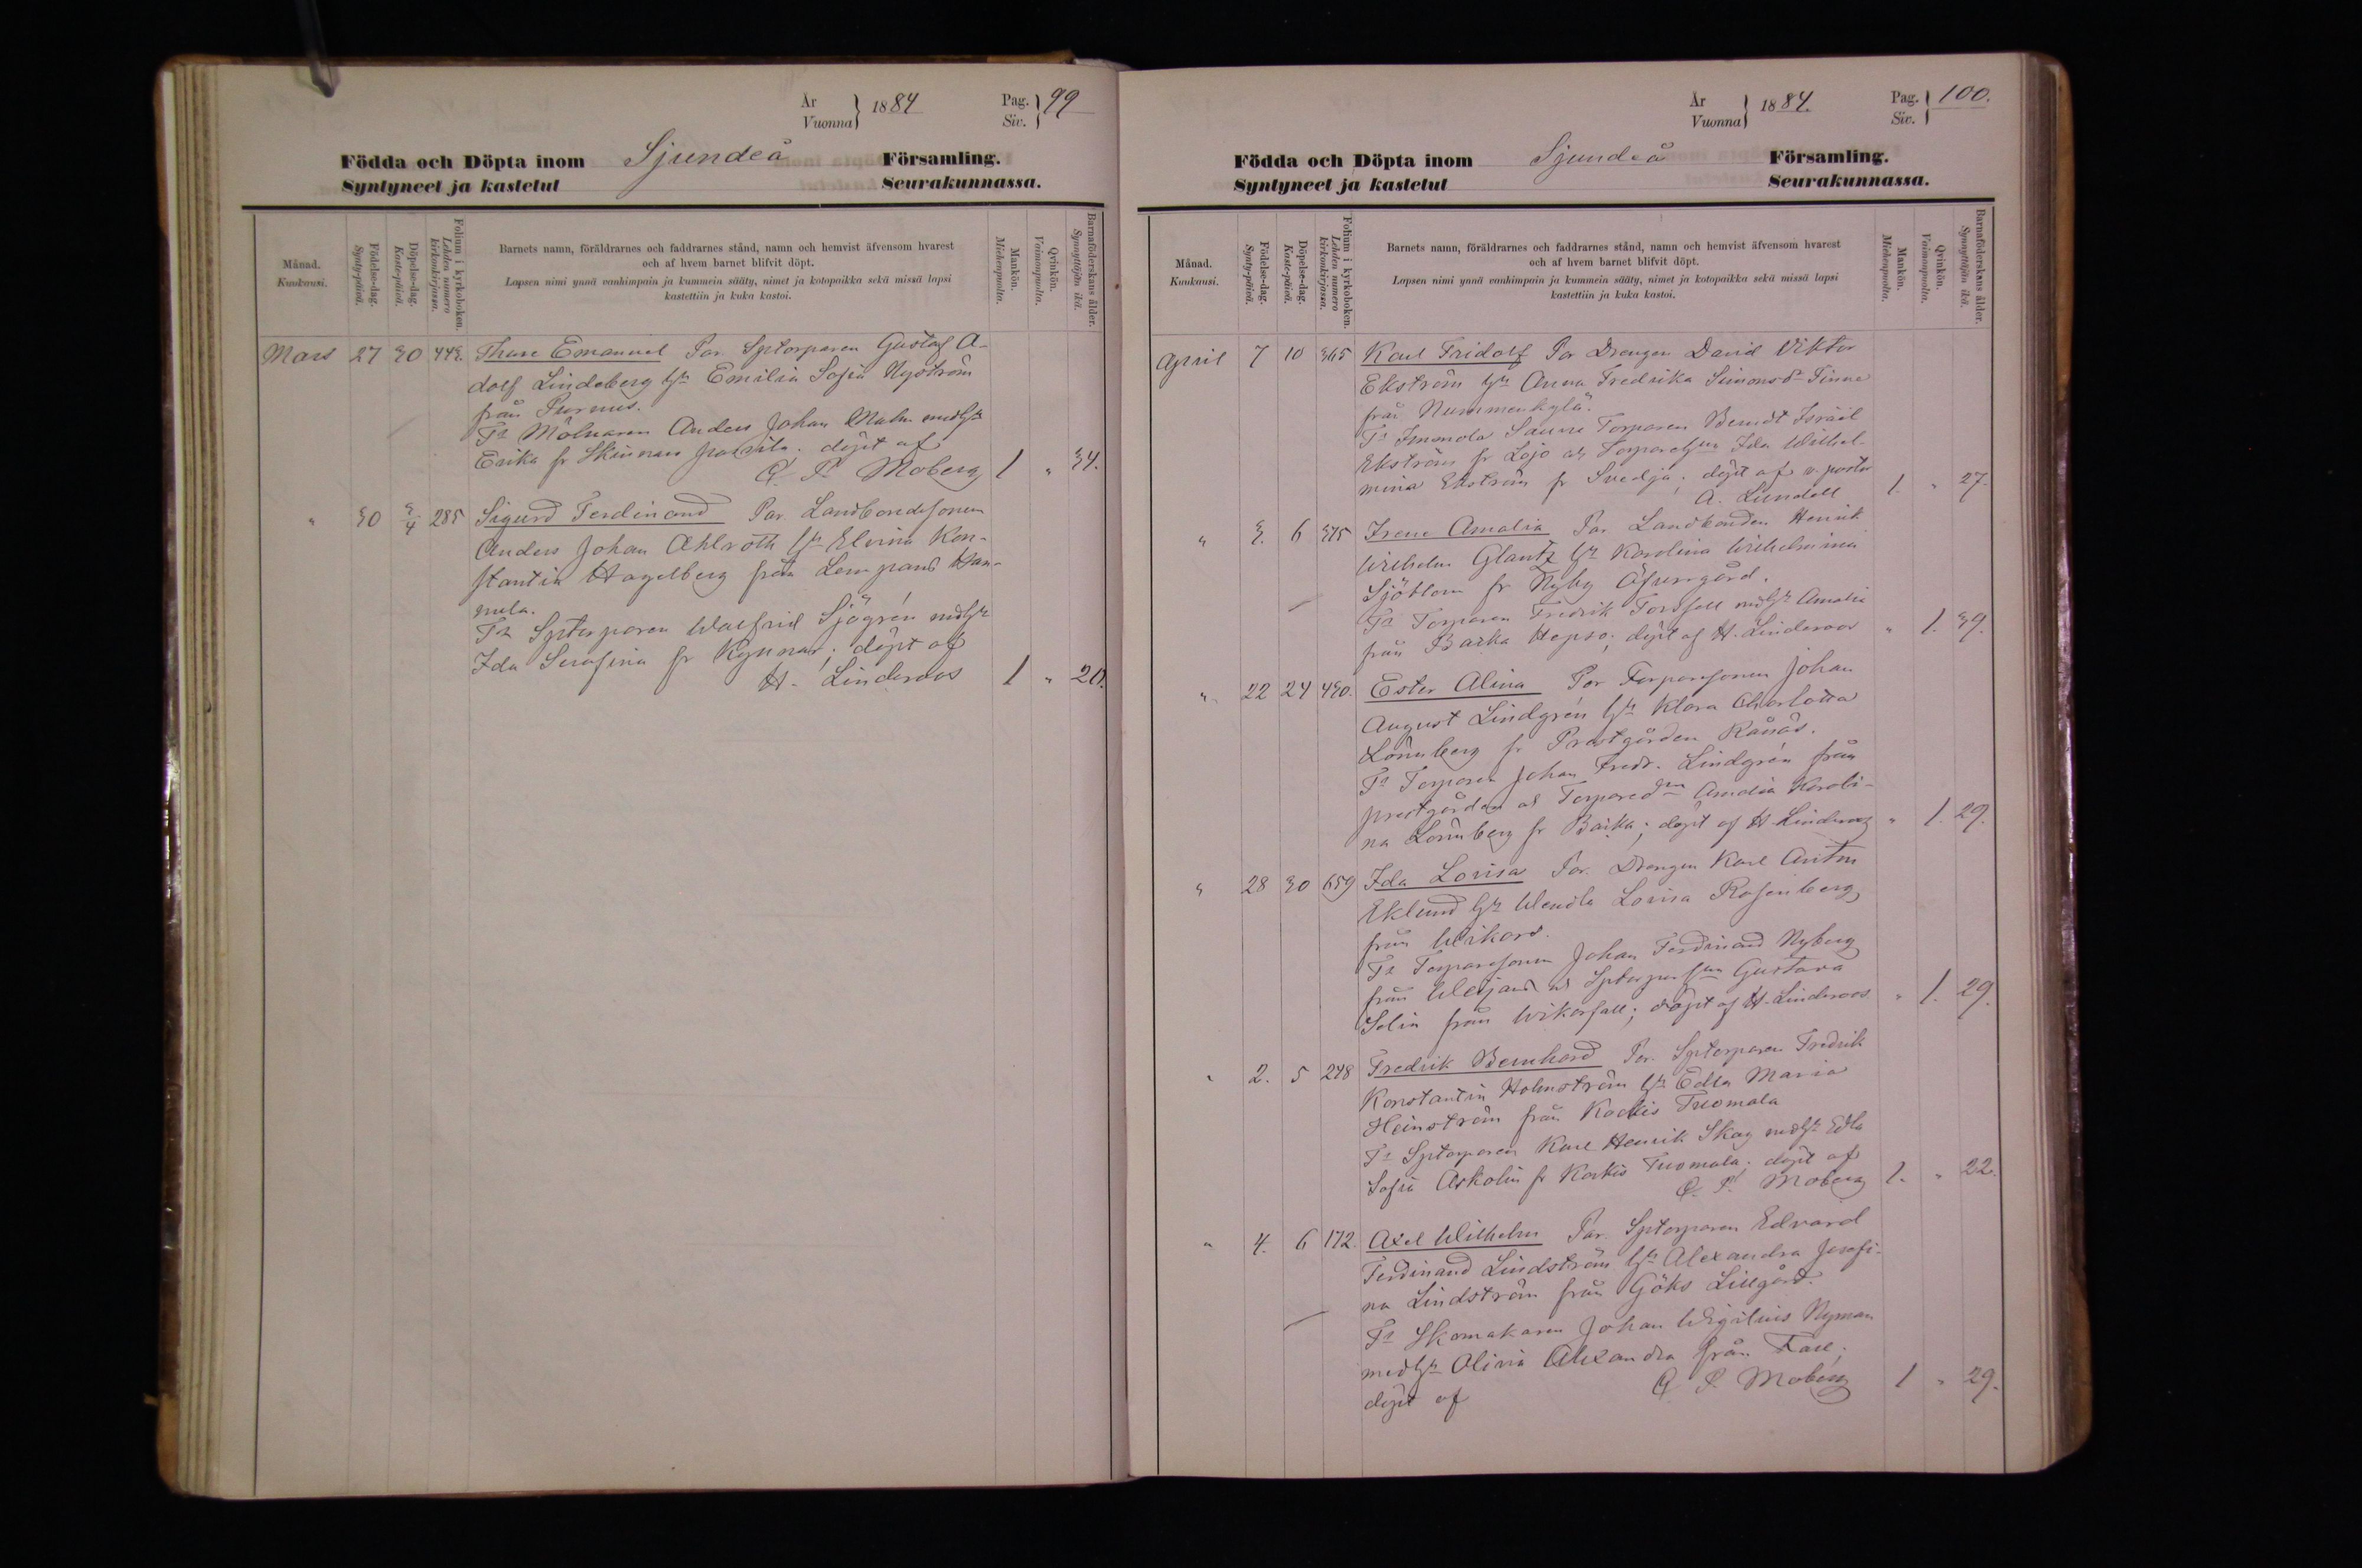 År
Vuonna } 1884
Pag.
Siv. } 99
Födda och Döpta inom Sjundeå Församling.
Syntyneet ja kastetut Seurakunnassa.
Månad.
Kuukausi.
Födelse-dag.
Synty-päivä.
Döpelse-dag.
Kaste-päivä.
Folium i kyrkoboken.
Lehden numero
kirkonkirjassa.
Barnets namn, föräldrarnes och faddrarnes stånd, namn och hemvist äfvensom hvarest
och af hvem barnet blifvit döpt.
Lapsen nimi ynnä vanhimpain ja kummein sääty, nimet ja kotopaikka sekä missä lapsi
kastettiin ja kuka kastoi.
Mankön.
Miehenpuolta.
Qvinkön.
Vaimonpuolta.
Barnaföderskans ålder.
Synnyttäjän ikä.
Mars 27 30 443. Thure Emanuel Par. Sptorparen Gustaf A-
dolf Lindeberg Emilia Sofia Nyström
från Purnus.
Mölnaren Anders Johan Malm
Erika fr Skinnars döpt af
G. P. Moberg 1 " 34.
" 30 3/4 285 Sigurd Ferdinand Par. Landbondesonen
Anders Johan Ahlroth Elvira Kon-
stantia Hagelberg från Lempans Han-
nula.
Sptorparen Walfrid Sjögrén
Ida Serafina fr Kynnar; döpt af
H. Linderoos 1 " 20.
År
Vuonna } 1884.
Pag.
Siv. } 100.
Födda och Döpta inom Sjundeå Församling.
Syntyneet ja kastetut Seurakunnassa.
Månad.
Kuukausi.
Födelse-dag.
Synty-päivä.
Döpelse-dag.
Kaste-päivä.
Folium i kyrkoboken.
Lehden numero
kirkonkirjassa.
Barnets namn, föräldrarnes och faddrarnes stånd, namn och hemvist äfvensom hvarest
och af hvem barnet blifvit döpt.
Lapsen nimi ynnä vanhimpain ja kummein sääty, nimet ja kotopaikka sekä missä lapsi
kastettiin ja kuka kastoi.
Mankön.
Miehenpuolta.
Qvinkön.
Vaimonpuolta.
Barnaföderskans ålder.
Synnyttäjän ikä.
April 7 10 365 Karl Fridolf Par Drengen David Viktor
Ekström Anna Fredrika Simonsdr
från Nummenkylä.
Torparen Berndt Israël
Ekström fr Lojo Ida Wilhel-
mina Ekström fr Svedja; döpt af
A. Lundell 1. " 27.
" 3. 6 375 Irene Amalia Par Landbonden Henrik
Wilhelm Glantz Karolina Wilhelmina
Sjöblom fr Nyby Öfvergård.
Torparen Fredrik Amalia
från Backa döpt af H. Linderoos " 1. 39.
" 22 24 430. Ester Alina Par Torparesonen Johan
August Lindgrén Klara Charlotta
Lönnberg fr Prestgården Rånäs.
Torparen Johan Fredr. Lindgrén från
prestgården Amalia Karoli-
na Lönnberg fr Backa; döpt af H. Linderoos " 1. 29.
" 28 30 659 Ida Lovisa Par. Drengen Karl Anton
Eklund Wendla Lovisa Rosenberg
från Wikars.
Torparesonen Johan Ferdinand Nyberg
från Gustava
Solin från döpt af H. Linderoos " 1. 29.
" 2. 5 248 Fredrik Bernhard Par. Sptorparen Fredrik
Konstantin Holmström Edla Maria
Heinström från Kockis Tuomala
Sptorparen Karl Henrik Skog Edla
Sofia Askolin fr Kockis Tuomala; döpt af
G. P. Moberg 1. " 22.
" 4. 6 172. Axel Wilhelm Par. Sptorparen Edvard
Ferdinand Lindström Alexandra Josefi-
na Lindström från Göks Lillgård.
Skomakaren Johan Wigilius Nyman
Olivia Alexandra från
döpt af G. P. Moberg 1 " 29.